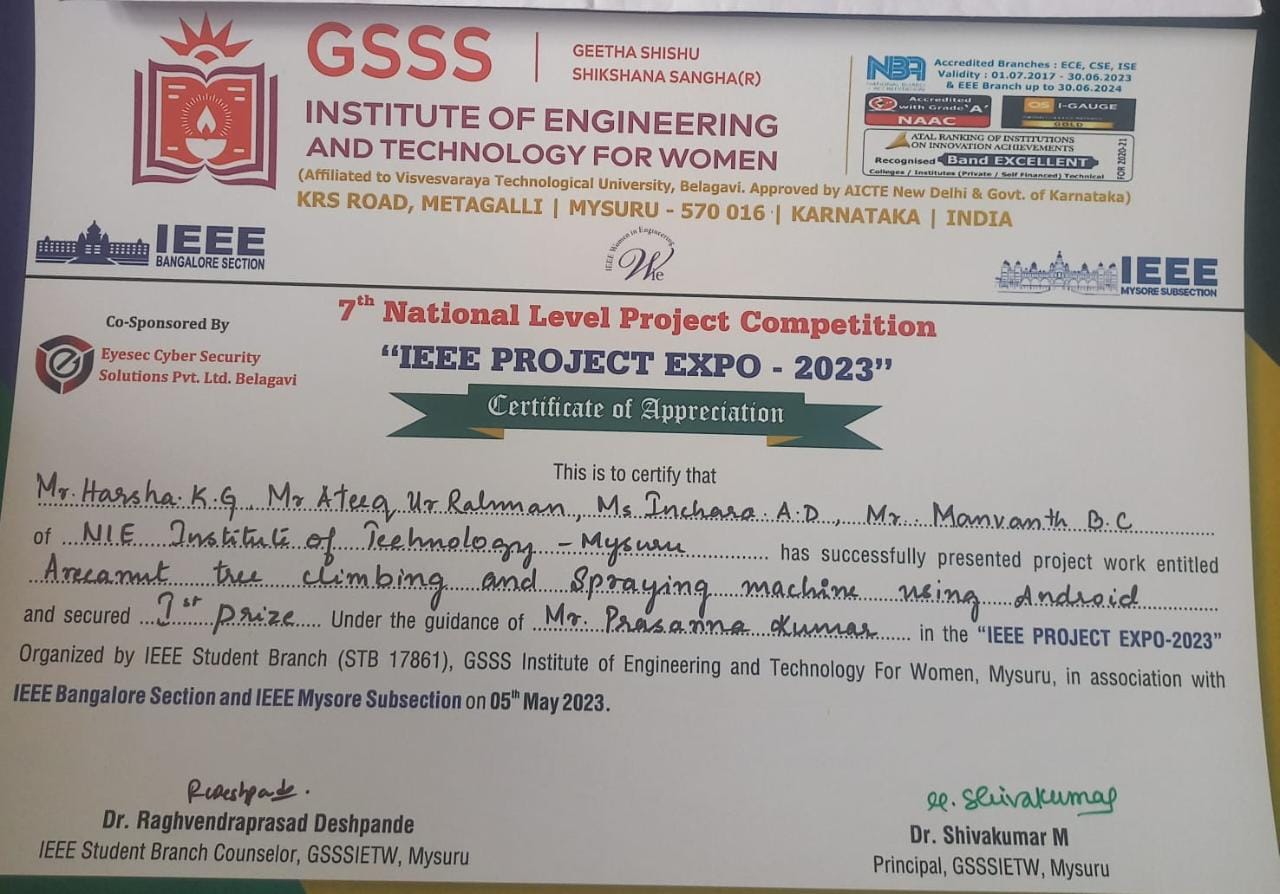 GSSS
GEETHA SHISHU
SHIKSHANA SANGHA(R)
INSTITUTE OF ENGINEERING
AND TECHNOLOGY FOR WOMEN
(Affiliated to Visvesvaraya Technological University, Belagavi. Approved by AICTE New Delhi & Govt. of Karnataka)
KRS ROAD, METAGALLI | MYSURU - 570 016 | KARNATAKA | INDIA
NBA
Accredited Branches : ECE, CSE, ISE
Validity : 01.07.2017 - 30.06.2023
& EEE Branch up to 30.06.2024
Accredited
with Grade 'A'
NAAC
QS I-GAUGE
GOLD
ATAL RANKING OF INSTITUTIONS
ON INNOVATION ACHIEVEMENTS
Recognised Band EXCELLENT
Colleges / Institutes (Private / Self Financed) Technical
FOR 2020-21
IEEE
BANGALORE SECTION
IEEE Women in Engineering
Wie
IEEE
MYSORE SUBSECTION
Co-Sponsored By
Eyesec Cyber Security
Solutions Pvt. Ltd. Belagavi
7th National Level Project Competition
“IEEE PROJECT EXPO - 2023”
Certificate of Appreciation
This is to certify that
Mr. Harsha. K.G, Mr Ateeq Ur Rahman, Ms Inchara A.D, Mr. Manvanth B.C
of NIE Institute of Technology - Mysuru has successfully presented project work entitled
Arecanut tree climbing and Spraying machine using Android
and secured Ist prize Under the guidance of Mr. Prasanna Kumar in the “IEEE PROJECT EXPO-2023”
Organized by IEEE Student Branch (STB 17861), GSSS Institute of Engineering and Technology For Women, Mysuru, in association with
IEEE Bangalore Section and IEEE Mysore Subsection on 05th May 2023.
Dr. Raghvendraprasad Deshpande
IEEE Student Branch Counselor, GSSSIETW, Mysuru
Shivakumar
Dr. Shivakumar M
Principal, GSSSIETW, Mysuru